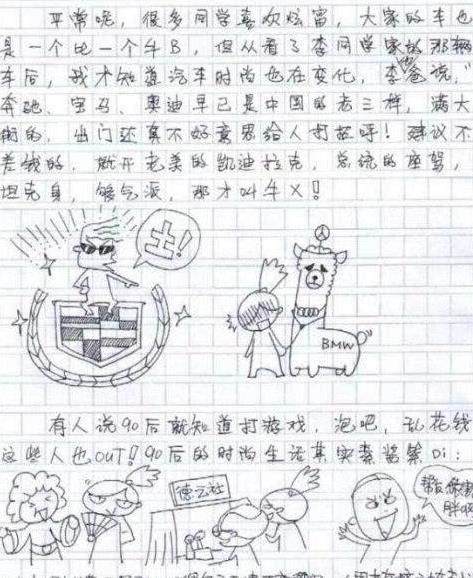 平常呢，很多同学喜欢炫富，大家的车也
是一个比一个牛B，但从看了李同学家的那辆
车后，我才知道汽车时尚也在变化，李爸说，"
奔驰、宝马、奥迪早已是中国的老三样，满大
街的，出门还真不好意思给人打招呼！建议不
差钱的，就开老美的凯迪拉克，总统的座驾，
坦克身，够气派，那才叫牛X！
土！
BMW
有人说90后就知道打游戏，泡吧，乱花钱
这些人也OUT！90后的时尚生活其实紊
Di：
德云社